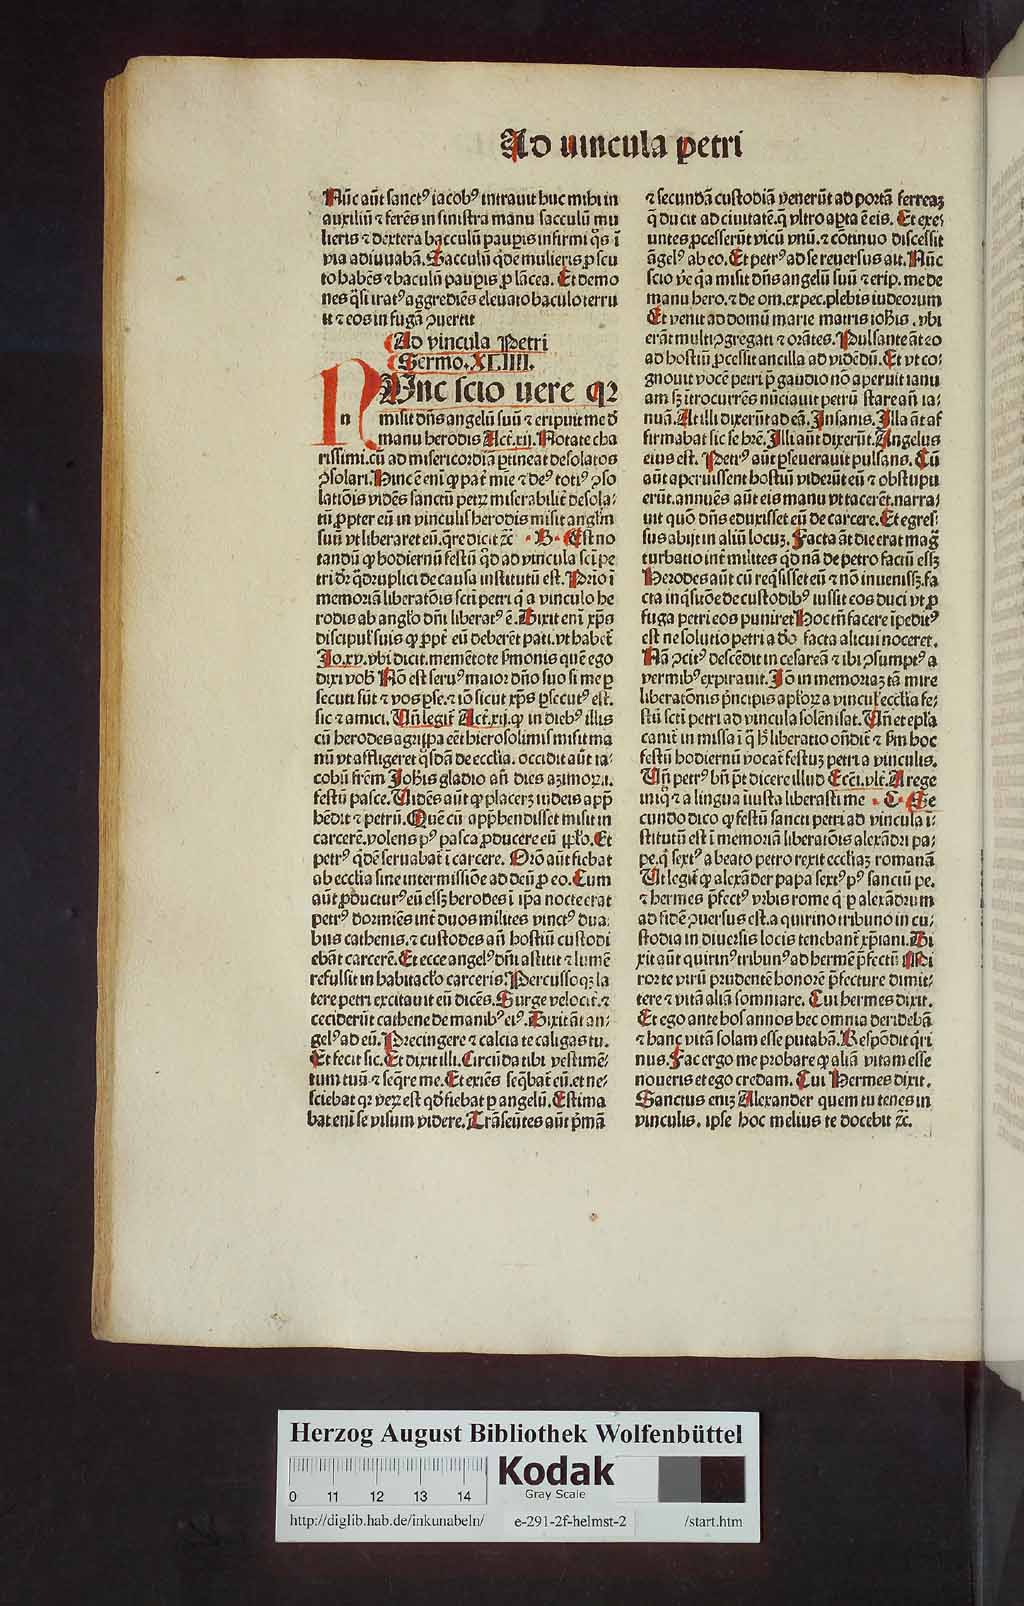 Ad uincula petri
Nūc aūt sanctꝰ iacobꝰ intrauit huc mihi in
auxiliū ⁊ ferēs in sinistra manu sacculū mu
lieris ⁊ dextera bacculū pauꝑis infirmi q̄s ī
via adiuuabā. Sacculū q̄de mulieris ꝓ scu
to habēs ⁊ baculū pauꝑis ꝓ lācea. Et demo
nes q̄si iratꝰ aggrediēs eleuato baculo terru
it ⁊ eos in fugā ꝯuertit
Ad vincula Petri
Sermo. XLIIII.
NUnc scio uere qꝛ
n misit dn̄s angelū suū ⁊ eripuit me d̄
manu herodis Act̄. xij. Notate cha
rissimi. cū ad misericordiā ꝑtineat desolatos
ꝯsolari. Hinc ē eni ꝙ pat̄ mīe ⁊ deꝰ totiꝰ ꝯso
latiōis vidēs sanctū petrꝫ miserabilit̄ desola⸗
tū ꝓpter eū in vinculis herodis misit angl̄m
suū vt liberaret eū. q̄re dicit ⁊c̄ · B · Est no
tandū ꝙ hodiernū festū q̄d ad vincula sc̄i pe
tri dr̄ q̄druplici de causa institutū est. Prīo ī
memoriā liberatōis scti petri q̄ a vinculo he
rodis ab angl̄o dn̄i liberatꝰ ē. Dixit eni xp̄s
discipul̄ suis ꝙ ꝓpt̄ eū deberēt pati. vt habet̄
Jo. xv. vbi dicit. memētote s̄monis quē ego
dixi vob̄ Nō est seruꝰ maior dn̄o suo si me ꝑ
secuti sūt ⁊ vos ꝑse. ⁊ iō sicut xp̄s ꝑsecutꝰ est.
sic ⁊ amici. Un̄ legit̄ Act̄. xij. ꝙ in diebꝰ illis
cū herodes agrippa eēt hierosolimis misit ma
nū vt affligeret q̄sdā de ecclīa. occidit aūt ia⸗
cobū frēm Joh̄is gladio an̄ dies azimoꝝ. ı.
festū pasce. Uidēs aūt ꝙ placerꝫ iudeis app̄
hēdit ⁊ petrū. Quē cū app̄hendisset misit in
carcerē. volens pꝰ pasca ꝓducere eū ip̄lo. Et
petrꝰ q̄dē seruabat̄ ī carcere. Orō aūt fiebat
ab ecclīa sine intermissiōe ad deū ꝓ eo. Cum
aūt ꝓducturꝰ eū essꝫ herodes ī ip̄a nocte erat
petrꝰ dormiēs int̄ duos milites vinctꝰ dua⸗
bus cathenis. ⁊ custodes an̄ hostiū custodi
ebāt carcerē. Et ecce angelꝰ dn̄i astitit ⁊ lumē
refulsit in habitacl̄o carceris. Percussoqꝫ la
tere petri excitauit eū dicēs. Surge velocit̄. ⁊
ceciderūt cathene de manibꝰ eiꝰ. Dixit āt an⸗
gelꝰ ad eū. Precingere ⁊ calcia te caligas tu.
Et fecit sic. Et dixit illi. Circūda tibi vestimē⸗
tum tuū ⁊ seq̄re me. Et exiēs seq̄bat̄ eū. et ne⸗
sciebat qꝛ verꝫ est qd̄ fiebat ꝑ angelū. Estima
bat eni se visum videre. Trāseūtes aūt p̄mā
⁊ secundā custodiā venerūt ad portā ferreaꝫ
q̄ ducit ad ciuitatē. q̄ vltro aꝑta ē eis. Et exe⸗
untes ꝓcesserūt vicū vnū. ⁊ cōtinuo discessit
āgelꝰ ab eo. Et petrꝰ ad se reuersus ait. Nūc
scio ve̅ qa misit dn̄s angelū suū ⁊ erip. me de
manu hero. ⁊ de om. expec. plebis iudeorum
Et venit ad domū marie matris ioh̄is. vbi
erāt multi ꝯgregati ⁊ orātes. Pulsante āt eo
ad hostiū ꝓcessit ancilla ad vidēdū. Et vt co⸗
gnouit vocē petri p̄ gaudio nō aperuit ianu
am sꝫ ītrocurrēs nūciauit petrū stare an̄ ia⸗
nuā. At illi dixerūt ad eā. Insanis. Illa āt af
firmabat sic se hr̄e. Illi aūt dixerūt. Angelus
eius est. Petrꝰ aūt ꝑseuerauit pulsans. Cū
aūt aperuissent hostiū viderūt eū ⁊ obstupu
erūt. annuēs aūt eis manu vt tacerēt. narra⸗
uit quō dn̄s eduxisset eū de carcere. Et egres⸗
sus abijt in aliū locuꝫ. Facta āt die erat maḡ
turbatio int̄ milites qd̄ nā de petro factū essꝫ
Herodes aūt cū req̄sisset eū ⁊ nō inuenissꝫ. fa
cta inq̄suōe de custodibꝰ iussit eos duci vt ꝓ
fuga petri eos puniret Hoc tn̄ facere īpeditꝰ
est ne solutio petri a do̅ facta alicui noceret.
Nā ꝓcitꝰ descēdit in cesareā ⁊ ibi ꝯsumptꝰ a
vermibꝰ expirauit. Iō in memoriaꝫ tā mire
liberatōnis p̄ncipis apl̄oꝝ a vincul̄ ecclīa fe⸗
stū scti petri ad vincula solēnisat. Un̄ et epl̄a
canit̄ in missa ī q̄ h̄ liberatio on̄dit̄ ⁊ s̄m hoc
festū hodiernū vocat̄ festuꝫ petri a vinculis.
Un̄ petrꝰ bn̄ pt̄ dicere illud Eccī. vlt̄. A rege
iniq̄ ⁊ a lingua īiusta liberasti me · C · Se
cundo dico ꝙ festū sancti petri ad vincula ī⸗
stitutū est ī memoriā liberatōnis alexādri pa⸗
pe. q̄ sextꝰ a beato petro rexit ecclīaꝫ romanā
Ut legit̄ ꝙ alexāder papa sextꝰ pꝰ sanctū pe.
⁊ hermes p̄fectꝰ vrbis rome q̄ ꝑ alexādrum
ad fidē ꝯuersus est. a quirino tribuno in cu⸗
stodia in diuersis locis tenebant̄ xp̄iani. Di
xit aūt quirinꝰ tribunꝰ ad hermē p̄fectū Mi
ror te virū prudentē honorē p̄fecture dimit⸗
tere ⁊ vitā aliā somniare. Cui hermes dixit.
Et ego ante hos annos hec omnia deridebā
⁊ hanc vitā solam esse putabā. Respōdit q̄ri
nus. Fac ergo me probare ꝙ aliā vitam esse
noueris et ego credam. Cui Hermes dixit.
Sanctus eniꝫ Alexander quem tu tenes in
vinculis. ipse hoc melius te docebit ⁊c̄.
Herzog August Bibliothek Wolfenbüttel
Kodak
Gray Scale
0 11 12 13 14
http://diglib.hab.de/inkunabeln/ e-291-2f-helmst-2 /start.htm